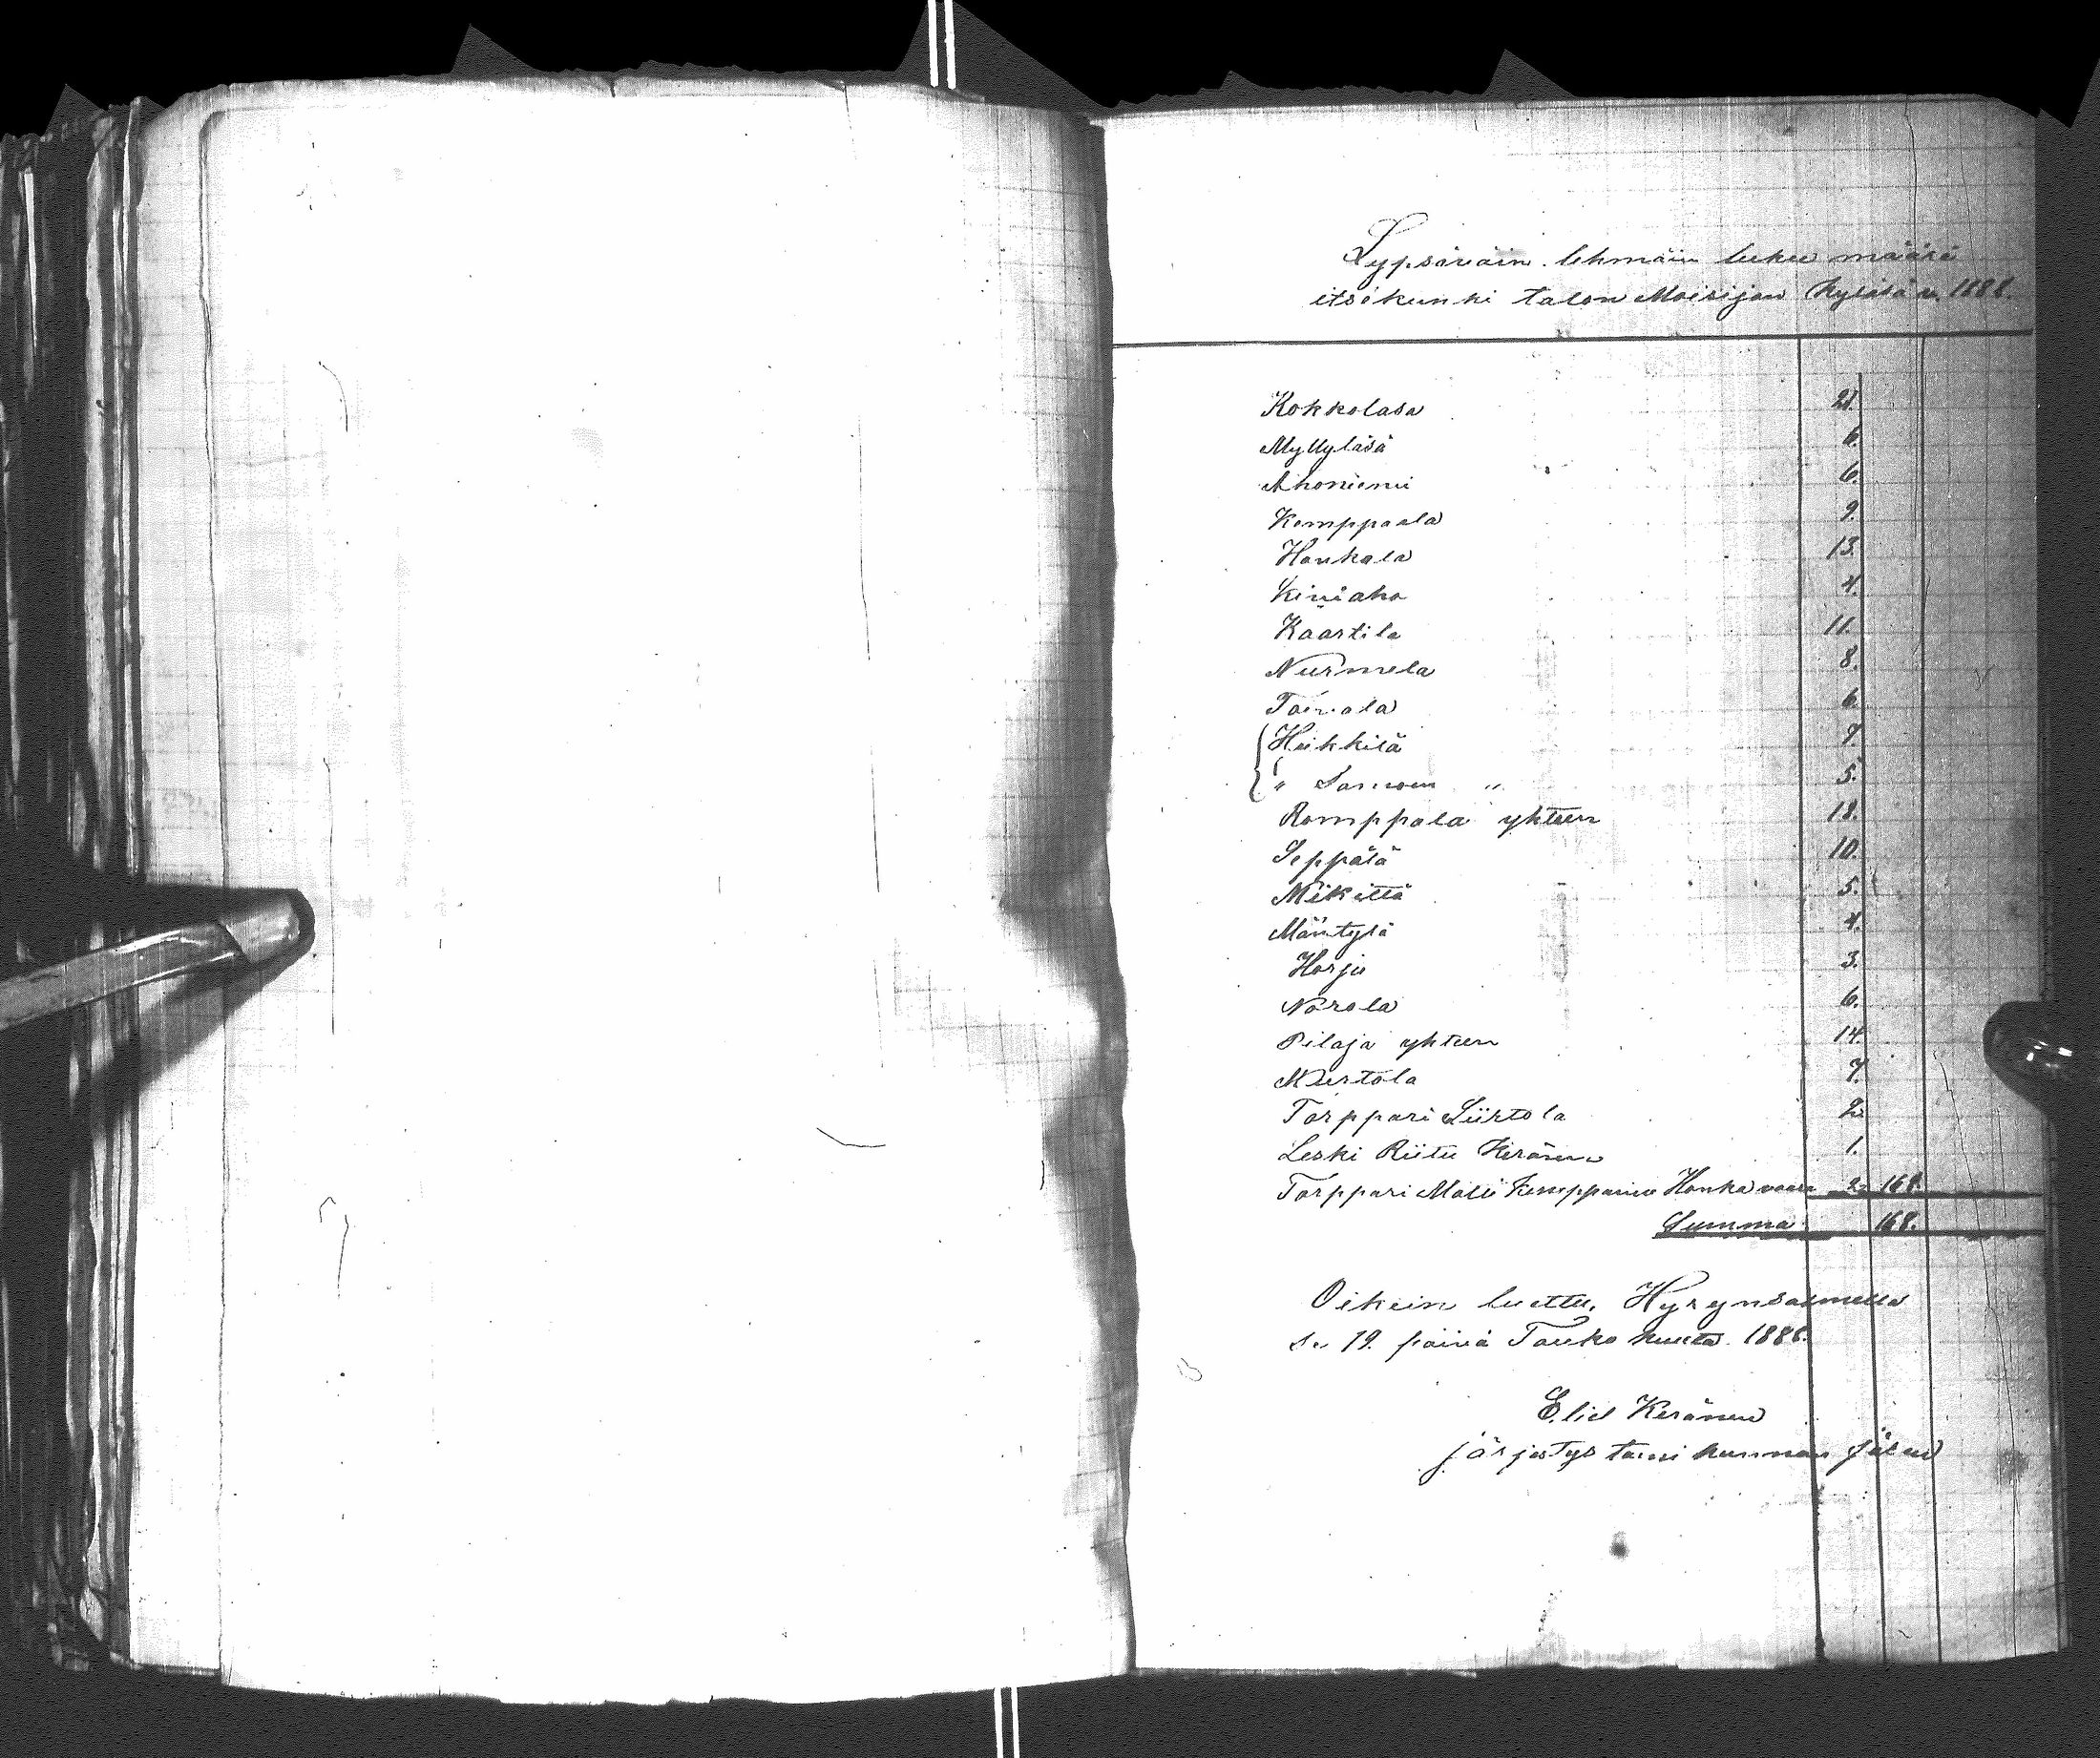 Lypsäväin lehmäin luku määrä
itsekunki talon Moisijon kyläsä v. 1888.
Kokkolasa 21.
Myllyläsä 6.
Ahoniemi 6.
Komppaala 9.
Haukala 13.
Kiviaho 4.
Kaartila 11.
Nurmela 8.
Toivola 6.
Heikkilä 7.
" Samoin " 5.
Romppala yhteen 18.
Seppälä 10.
Mikittä 5.
Mäntylä 4.
Harju 3.
Norola 6.
Pilaja yhteen 14.
Murtola 7.
Torppari Siirtola 2.
Leski Riitu Keränen 1.
Torppari Matti Kemppainen Honkavaara 2. 168.
Summa 168.
Oikein luettu, Hyrynsalmella
se 19. päivä Touko kuuta 1888.
Eliel Keränen
järjestys toimi kunnan jäsen